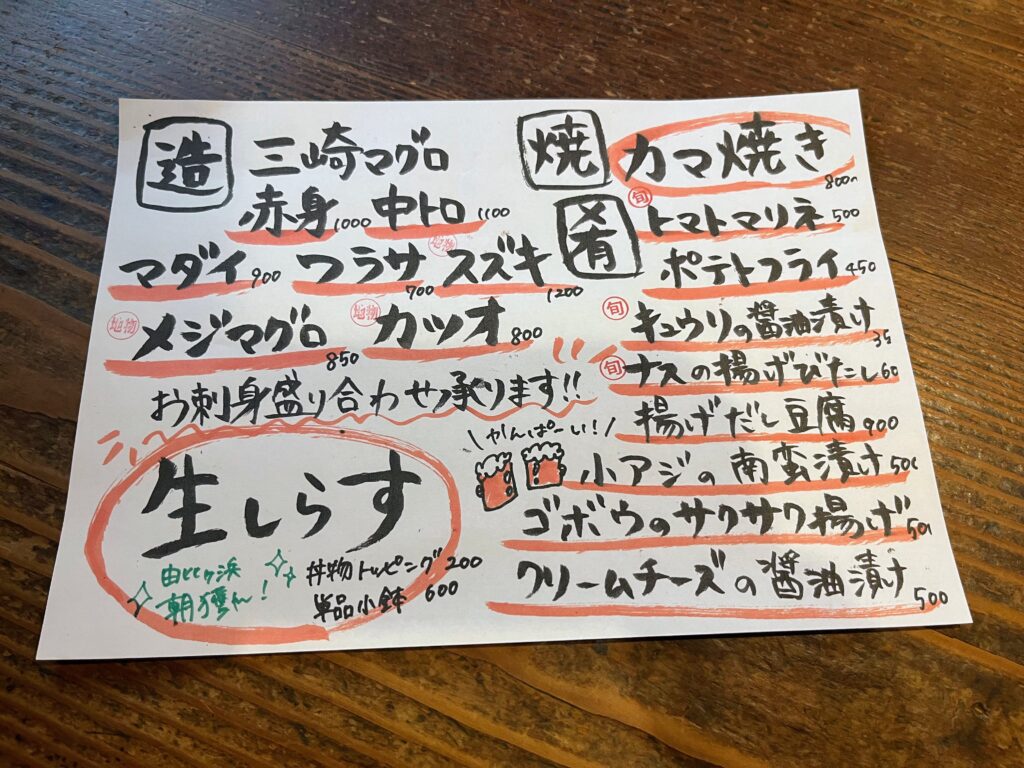 造 三崎マグロ
赤身 1000 中トロ 1100
マダイ 900 ワラサ 700 地物 スズキ 1200
地物 メジマグロ 850 地物 カツオ 800
お刺身盛り合わせ承ります!!
生しらす
由比ヶ浜
朝獲れ!
丼物トッピング 200
単品小鉢 600
焼 カマ焼き 800
肴 旬 トマトマリネ 500
ポテトフライ 450
旬 キュウリの醤油漬け 35
旬 ナスの揚げびたし 60
揚げだし豆腐
かんぱーい!
小アジの南蛮漬け 50
ゴボウのサクサク揚げ 50
クリームチーズの醤油漬け 500